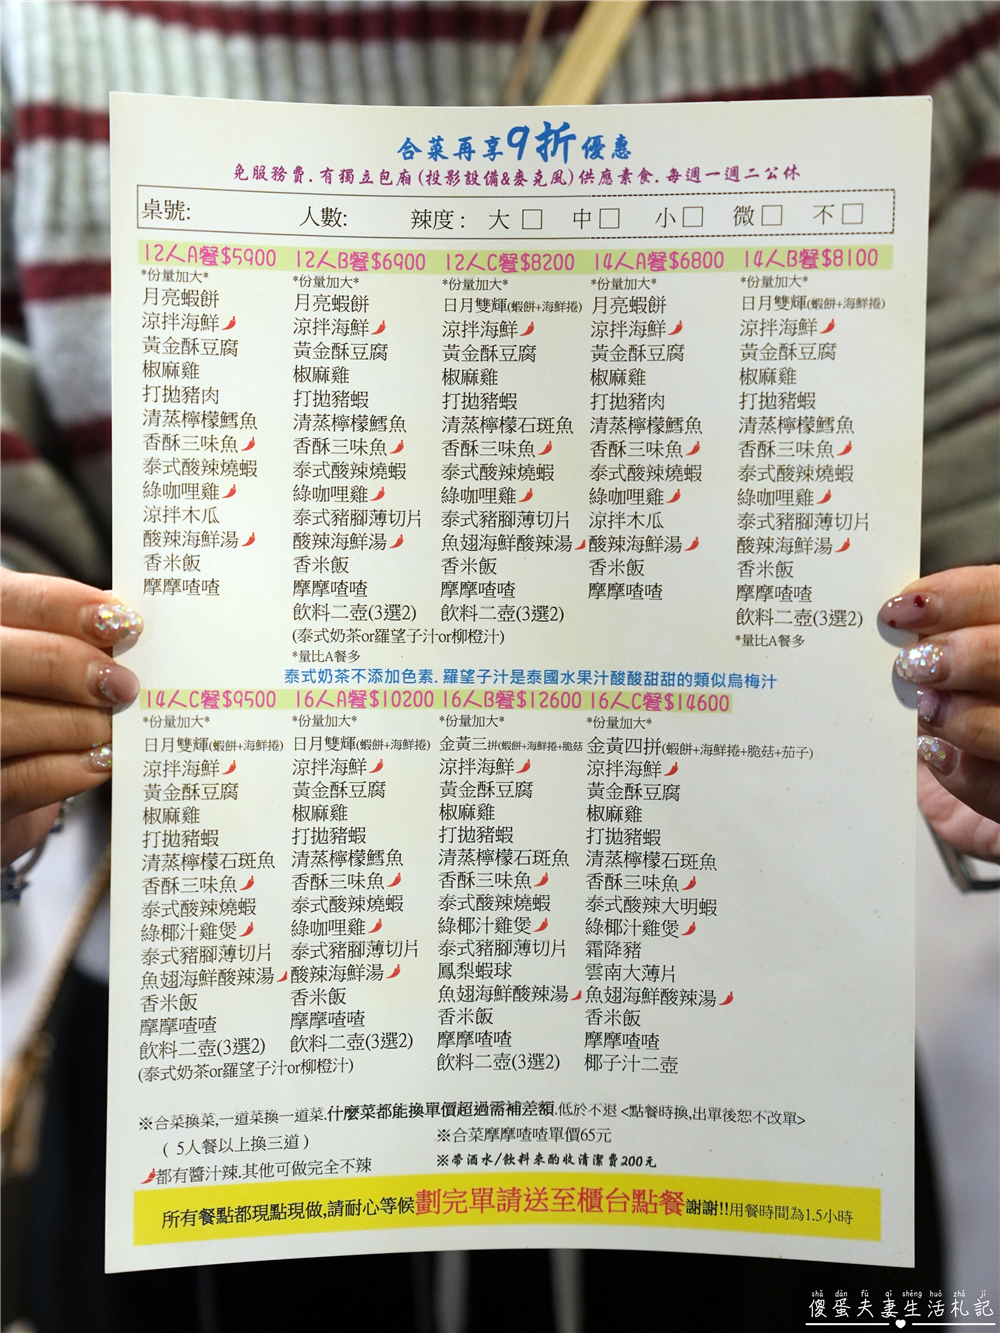 合菜再享9折優惠
免服務費.有獨立包廂(投影設備&麥克風)供應素食.每週一週二公休
桌號: 人數: 辣度: 大□ 中□ 小□ 微□ 不□
12人A餐$5900
*份量加大*
月亮蝦餅
涼拌海鮮
黃金酥豆腐
椒麻雞
打拋豬肉
清蒸檸檬鱈魚
香酥三味魚
泰式酸辣燒蝦
綠咖哩雞
涼拌木瓜
酸辣海鮮湯
香米飯
摩摩喳喳
12人B餐$6900
*份量加大*
月亮蝦餅
涼拌海鮮
黃金酥豆腐
椒麻雞
打拋豬蝦
清蒸檸檬鱈魚
香酥三味魚
泰式酸辣燒蝦
綠咖哩雞
泰式豬腳薄切片
酸辣海鮮湯
香米飯
摩摩喳喳
飲料二壺(3選2)
(泰式奶茶or羅望子汁or柳橙汁)
*量比A餐多
12人C餐$8200
*份量加大*
日月雙輝(蝦餅+海鮮捲)
涼拌海鮮
黃金酥豆腐
椒麻雞
打拋豬蝦
清蒸檸檬石斑魚
香酥三味魚
泰式酸辣燒蝦
綠咖哩雞
泰式豬腳薄切片
魚翅海鮮酸辣湯
香米飯
摩摩喳喳
飲料二壺(3選2)
14人A餐$6800
*份量加大*
月亮蝦餅
涼拌海鮮
黃金酥豆腐
椒麻雞
打拋豬肉
清蒸檸檬鱈魚
香酥三味魚
泰式酸辣燒蝦
綠咖哩雞
涼拌木瓜
酸辣海鮮湯
香米飯
摩摩喳喳
14人B餐$8100
*份量加大*
日月雙輝(蝦餅+海鮮捲)
涼拌海鮮
黃金酥豆腐
椒麻雞
打拋豬蝦
清蒸檸檬鱈魚
香酥三味魚
泰式酸辣燒蝦
綠咖哩雞
泰式豬腳薄切片
酸辣海鮮湯
香米飯
摩摩喳喳
飲料二壺(3選2)
*量比A餐多
泰式奶茶不添加色素.羅望子汁是泰國水果汁酸酸甜甜的類似烏梅汁
14人C餐$9500
*份量加大*
日月雙輝(蝦餅+海鮮捲)
涼拌海鮮
黃金酥豆腐
椒麻雞
打拋豬蝦
清蒸檸檬石斑魚
香酥三味魚
泰式酸辣燒蝦
綠椰汁雞煲
泰式豬腳薄切片
魚翅海鮮酸辣湯
香米飯
摩摩喳喳
飲料二壺(3選2)
(泰式奶茶or羅望子汁or柳橙汁)
16人A餐$10200
*份量加大*
日月雙輝(蝦餅+海鮮捲)
涼拌海鮮
黃金酥豆腐
椒麻雞
打拋豬蝦
清蒸檸檬鱈魚
香酥三味魚
泰式酸辣燒蝦
綠咖哩雞
泰式豬腳薄切片
酸辣海鮮湯
香米飯
摩摩喳喳
飲料二壺(3選2)
16人B餐$12600
*份量加大*
金黃三拼(蝦餅+海鮮捲+脆菇
涼拌海鮮
黃金酥豆腐
椒麻雞
打拋豬蝦
清蒸檸檬石斑魚
香酥三味魚
泰式酸辣燒蝦
綠椰汁雞煲
泰式豬腳薄切片
鳳梨蝦球
魚翅海鮮酸辣湯
香米飯
摩摩喳喳
飲料二壺(3選2)
16人C餐$14600
*份量加大*
金黃四拼(蝦餅+海鮮捲+脆菇+茄子)
涼拌海鮮
黃金酥豆腐
椒麻雞
打拋豬蝦
清蒸檸檬石斑魚
香酥三味魚
泰式酸辣大明蝦
綠椰汁雞煲
霜降豬
雲南大薄片
魚翅海鮮酸辣湯
香米飯
摩摩喳喳
椰子汁二壺
※合菜換菜,一道菜換一道菜.什麼菜都能換單價超過需補差額.低於不退<點餐時換,出單後恕不改單>
(5人餐以上換三道)
※合菜摩摩喳喳單價65元
都有醬汁辣.其他可做完全不辣
※帶酒水/飲料來酌收清潔費200元
所有餐點都現點現做,請耐心等候劃完單請送至櫃台點餐謝謝!!用餐時間為1.5小時
shǎ dàn fū qī shēng huó zhá jì
傻蛋夫妻生活札記